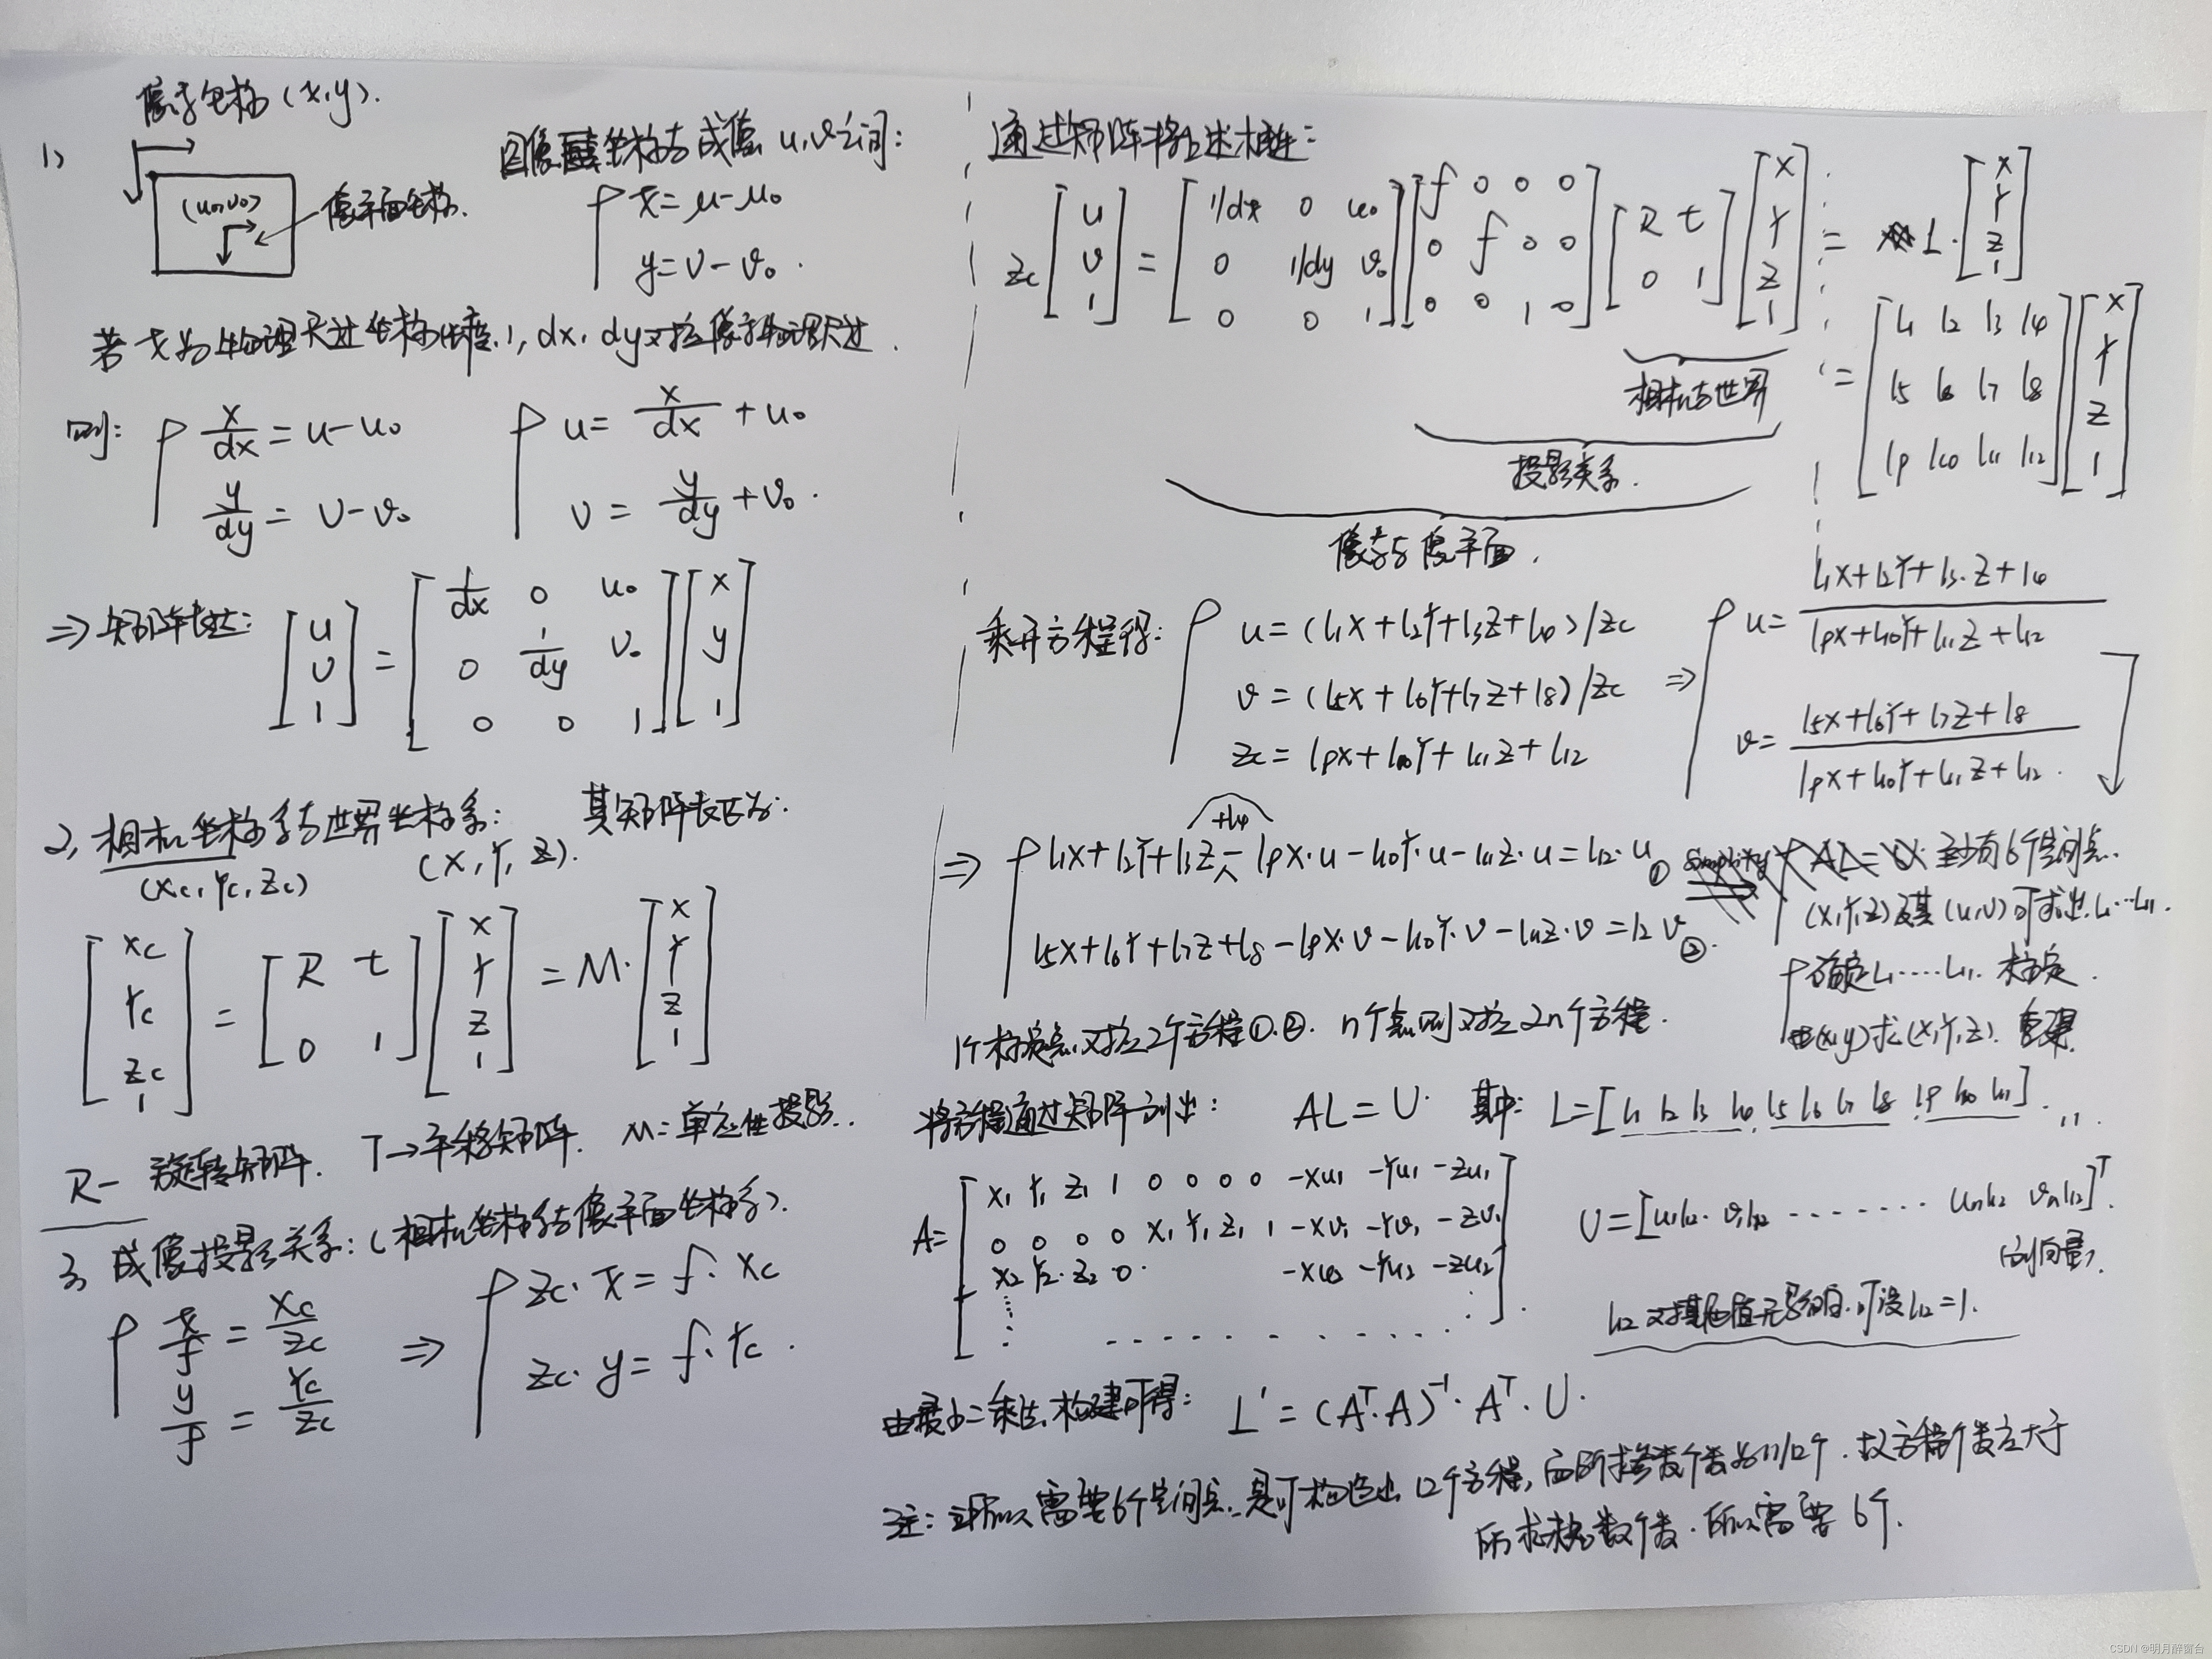 像素坐标 (x,y).
1)
(u0,v0)
像平面坐标.
图像坐标与成像 u,v之间:
x=u-u0
y=v-v0.
若 x为物理尺寸坐标, dx, dy对应像素物理尺寸.
则: { x/dx = u-u0
y/dy = v-v0
{ u= x/dx + u0
v = y/dy + v0.
⇒ 矩阵表达: [u v 1] = [1/dx 0 u0; 0 1/dy v0; 0 0 1] [x y 1]
2, 相机坐标系与世界坐标系: 其矩阵表达为:
(xc, Yc, Zc) (X, Y, Z).
[xc Yc Zc 1] = [R t; 0 1] [X Y Z 1] = M· [X Y Z 1]
R- 旋转矩阵. T→平移矩阵. M: 单应性投影.
3, 成像投影关系: (相机坐标系与像平面坐标系).
{ x/f = Xc/Zc
y/f = Yc/Zc
⇒ { Zc·x = f·Xc
Zc·y = f·Yc.
通过矩阵将上述相连:
Zc [u v 1] = [1/dx 0 u0; 0 1/dy v0; 0 0 1] [f 0 0 0; 0 f 0 0; 0 0 1 0] [R t; 0 1] [X Y Z 1] = L· [X Y Z 1]
= [l1 l2 l3 l4; l5 l6 l7 l8; l9 l10 l11 l12] [X Y Z 1]
相机与世界
投影关系.
像素与像平面.
乘开方程得: { u=(l1X+l2Y+l3Z+l4)/Zc
v=(l5X+l6Y+l7Z+l8)/Zc
Zc= l9X+l10Y+l11Z+l12
⇒ { u= (l1X+l2Y+l3·Z+l4)/(l9X+l10Y+l11Z+l12)
v= (l5X+l6Y+l7Z+l8)/(l9X+l10Y+l11Z+l12).
+l4
⇒ { l1X+l2Y+l3Z - l9X·u-l10Y·u-l11Z·u=l12·u ①
l5X+l6Y+l7Z+l8-l9X·v-l10Y·v-l11Z·v=l2 v ②.
至少有6个空间点.
(X,Y,Z)及其(u,v)可求出 l1···l11.
确定l1····l11. 标定.
由(x,y)求(X,Y,Z). 重建.
1个标定点对应2个方程①.②. n个点则对应2n个方程.
将方程通过矩阵列出: AL=U. 其中: L=[l1 l2 l3 l4 l5 l6 l7 l8 l9 l10 l11].
A= [X1 Y1 Z1 1 0 0 0 0 -Xu1 -Yu1 -Zu1
0 0 0 0 X1 Y1 Z1 1 -Xv1 -Yv1 -Zv1
X2 Y2 Z2 0 -Xu2 -Yu2 -Zu2]
U=[u1l12. v1l12 ------- unl12 vnl12]^T.
(列向量)
l12对其他值无影响.可设l12=1.
由最小二乘法.构建可得: L'=(A^T·A)^-1·A^T·U.
注: 所以需要6个空间点,是可构造出12个方程, 而所求参数个数为11/12个. 故方程个数应大于
所求 数个数. 所以需要6个.